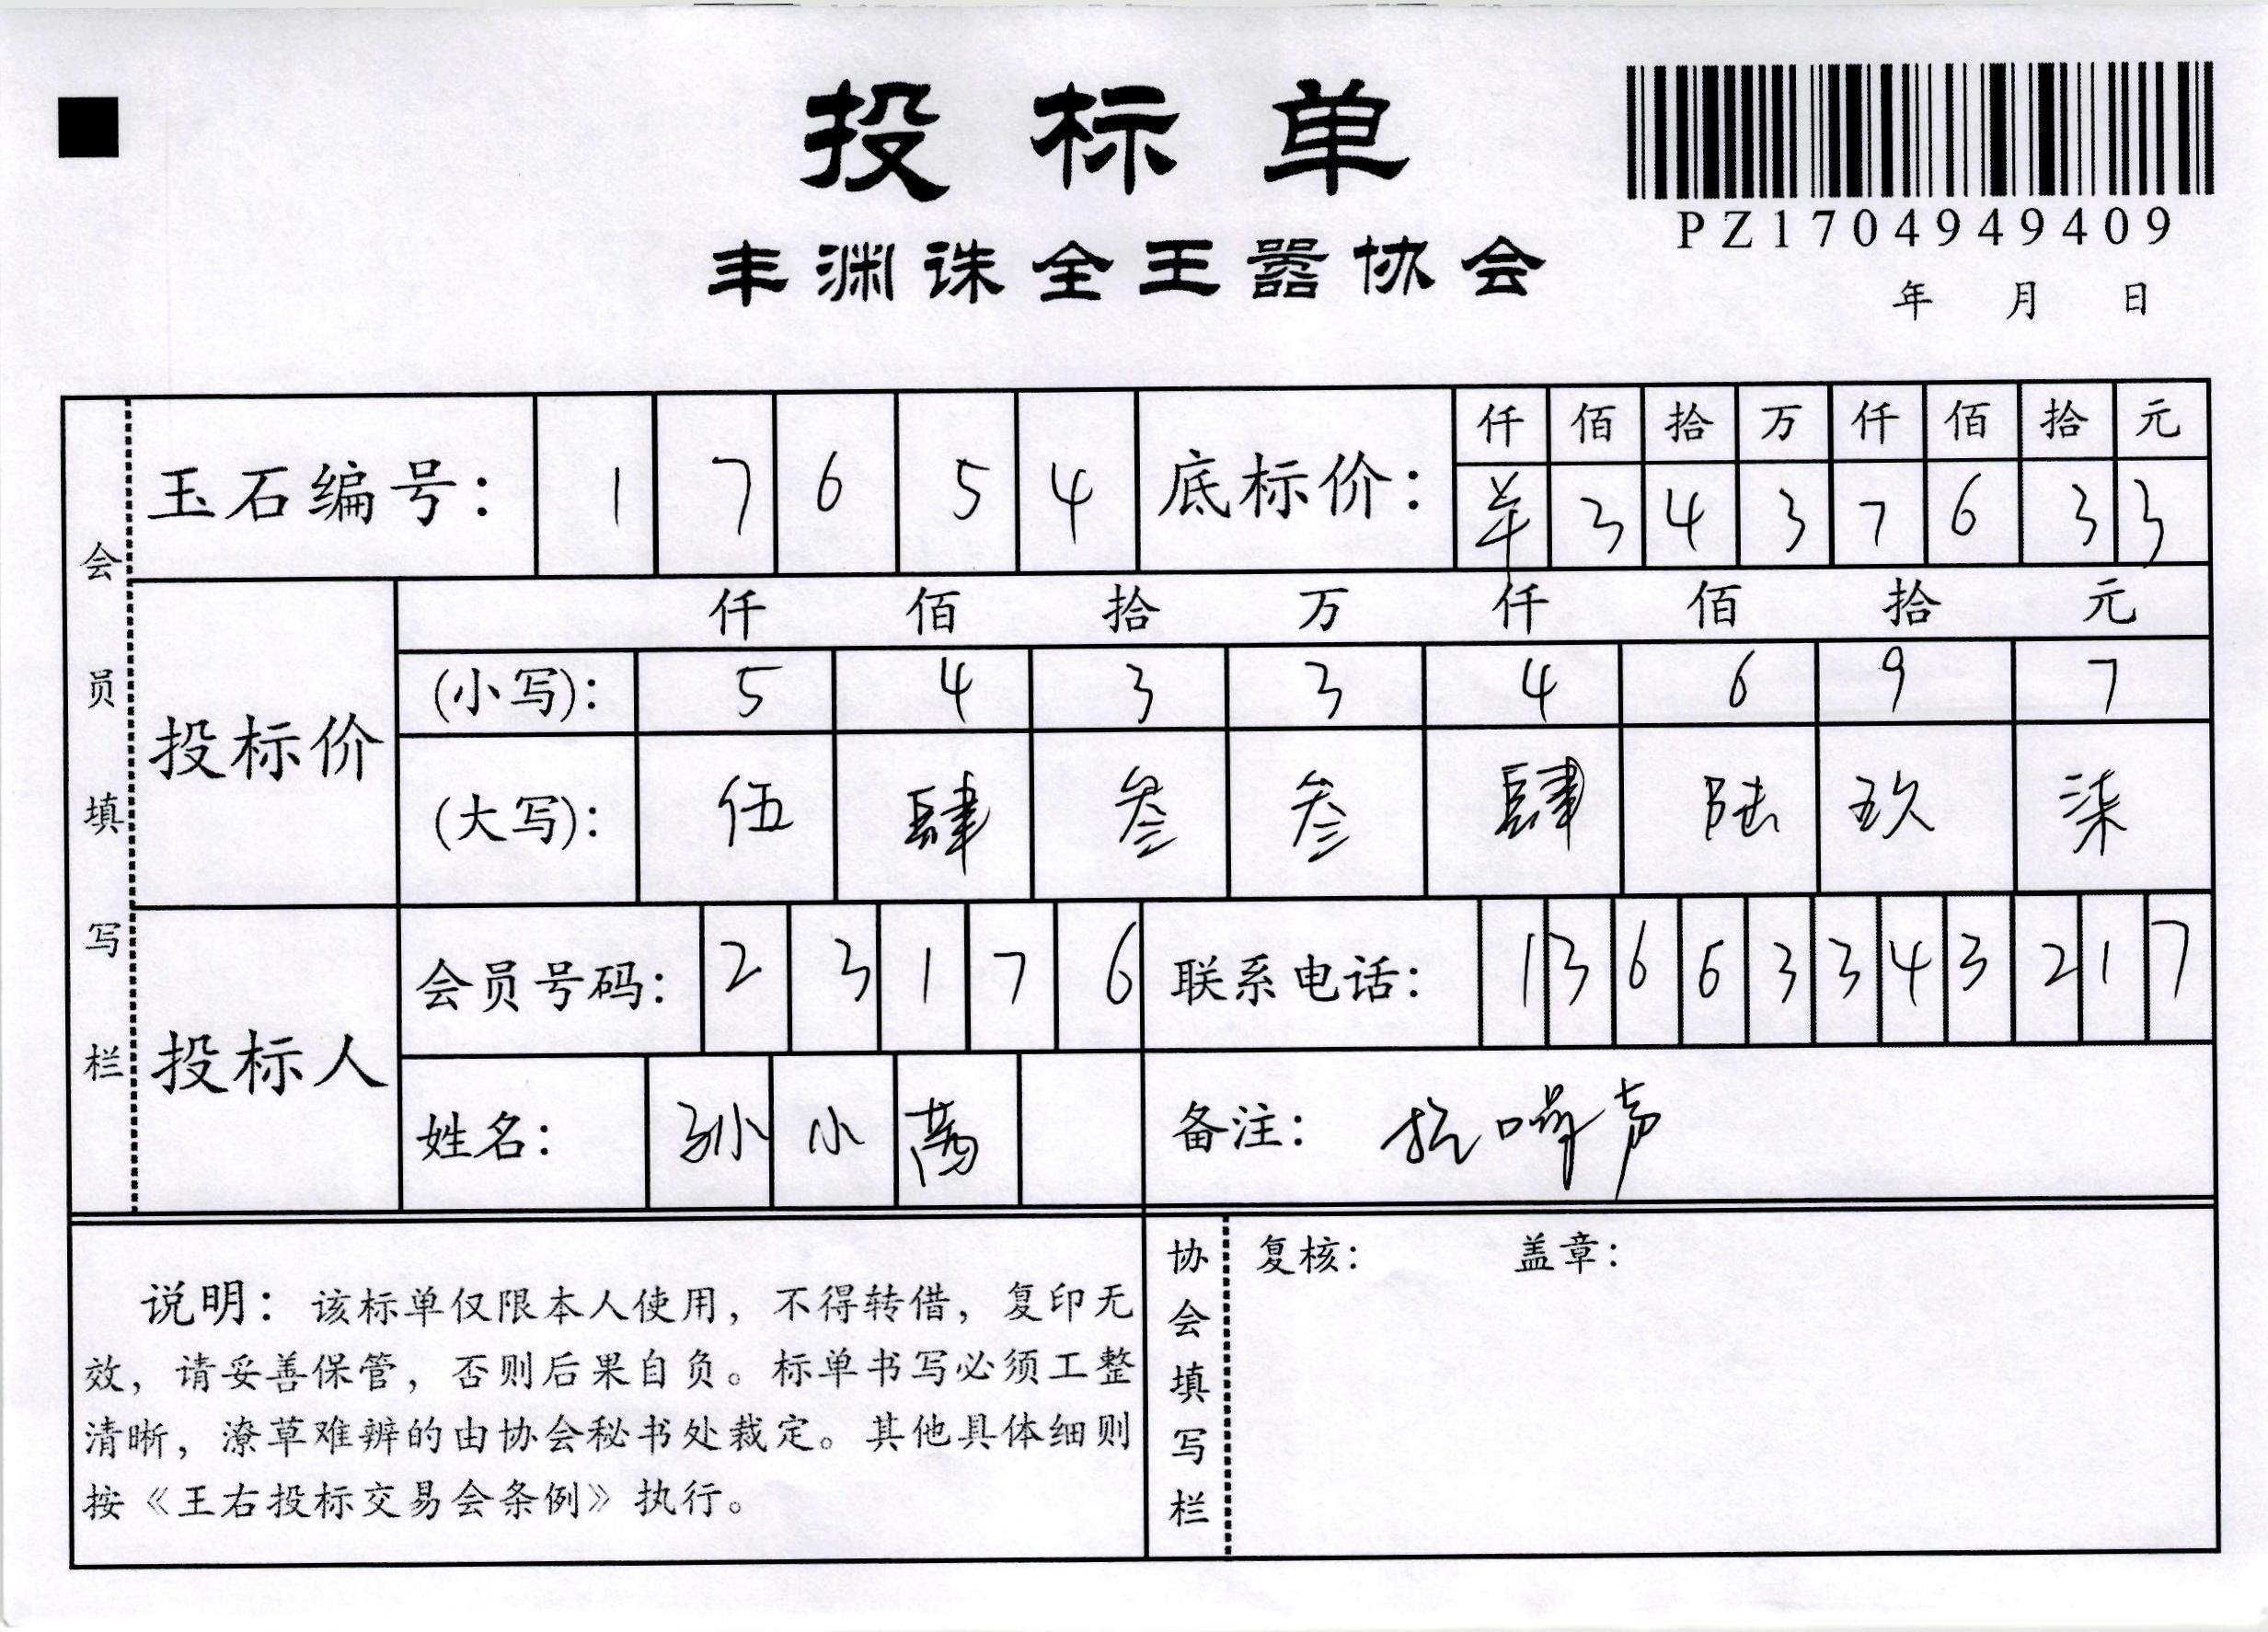 投标单
PZ1704949409
丰渊诛全王嚣协会
年 月 日
会员填写栏
玉石编号： 1 7 6 5 4
底标价： 仟 佰 拾 万 仟 佰 拾 元
羊 3 4 3 7 6 3 3
投标价
仟 佰 拾 万 仟 佰 拾 元
(小写)： 5 4 3 3 4 6 9 7
(大写)： 伍 肆 叁 叁 肆 陆 玖 柒
投标人
会员号码： 2 3 1 7 6
联系电话： 1 3 6 6 3 3 4 3 2 1 7
姓名： 孙 小
备注： 抗噪声
说明：该标单仅限本人使用，不得转借，复印无
效，请妥善保管，否则后果自负。标单书写必须工整
清晰，潦草难辨的由协会秘书处裁定。其他具体细则
按《王右投标交易会条例》执行。
协会填写栏
复核： 盖章：